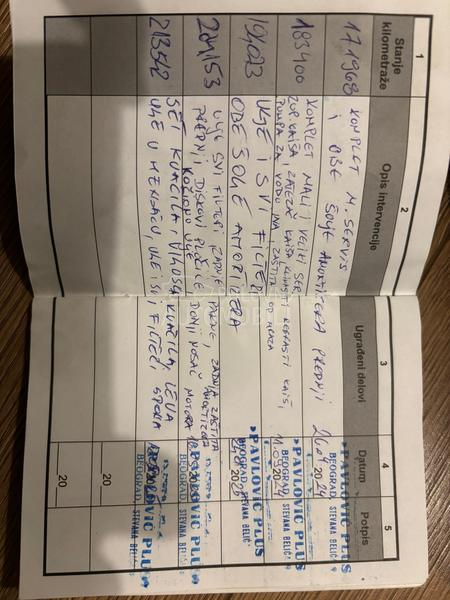 1
2
3
4
5
Stanje kilometraže
Opis intervencije
Ugrađeni delovi
Datum
Potpis
171968
KOMPLET M. SERVIS
I OBE ŠOLJE AMORTIZERA PREDNJI
26.07.2024
»PAVLOVIC PLUS
BEOGRAD, STEVANA BELIĆ
183400
KOMPLET MALI I VELIKI SER
ZUP. KAIŠA, ZATEZAČ KAIŠA, KLINASTI REBRASTI KAIŠ,
PUMPA ZA VODU INA, ZAŠTITA OD MRAZA
11.09.2024
»PAVLOVIC PLUS
BEOGRAD, STEVANA BELIĆ
194023
ULJE I SVI FILTERI
OBE ŠOLJE AMORTIZERA
2020
»PAVLOVIC PLUS
BEOGRAD, STEVANA BELIĆ
204153
ULJE SVI FILTERI, ZADNJE PAKNE, ZADNJA ZAŠTITA
PREDNJI DISKOVI PLOČICE, DONJI NOSAČ MOTORA
KOČIONO ULJE
PAVLOVIC PLUS
BEOGRAD, STEVANA BELIĆ
213542
SET KVAČILA, VILJUŠKA KVAČILA, LEVA SPONA
ULJE U MENJAČU, ULJE I SVI FILTERI
PAVLOVIC PLUS
BEOGRAD, STEVANA BELIĆ
20
20